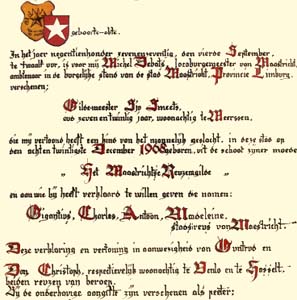 geboorte-akte.
In het jaar negentienhonderd zevenenzeventig, den vierde September,
te twaalf uur, is voor mij Michel Debats, locoburgemeester van Maastricht,
ambtenaar in de burgelijke stand van de stad Maastricht, Provincie Limburg,
verschenen;
Gildemeester Sjo Smeets,
oud zevenentwintig jaar, woonachtig te Meerssen,
die mij vertoond heeft een kind van het mannelijk geslacht, in deze stad op
den achtentwintigste December 1968 geboren, uit de schoot zijner moeder
" Het Maastrichts Reuzengilde "
en aan wie hij heeft verklaard te willen geven de namen:
Gigantius, Charlos, Antoin, Madeleine,
van Maestricht.
Deze verklaring en vertoning in aanwezigheid van en
Don Christoph, respectievelijk woonachtig te Venlo en te Hasselt,
beiden reuzen van beroep.
Bij de onderhavige aangifte zijn verschenen als peter: